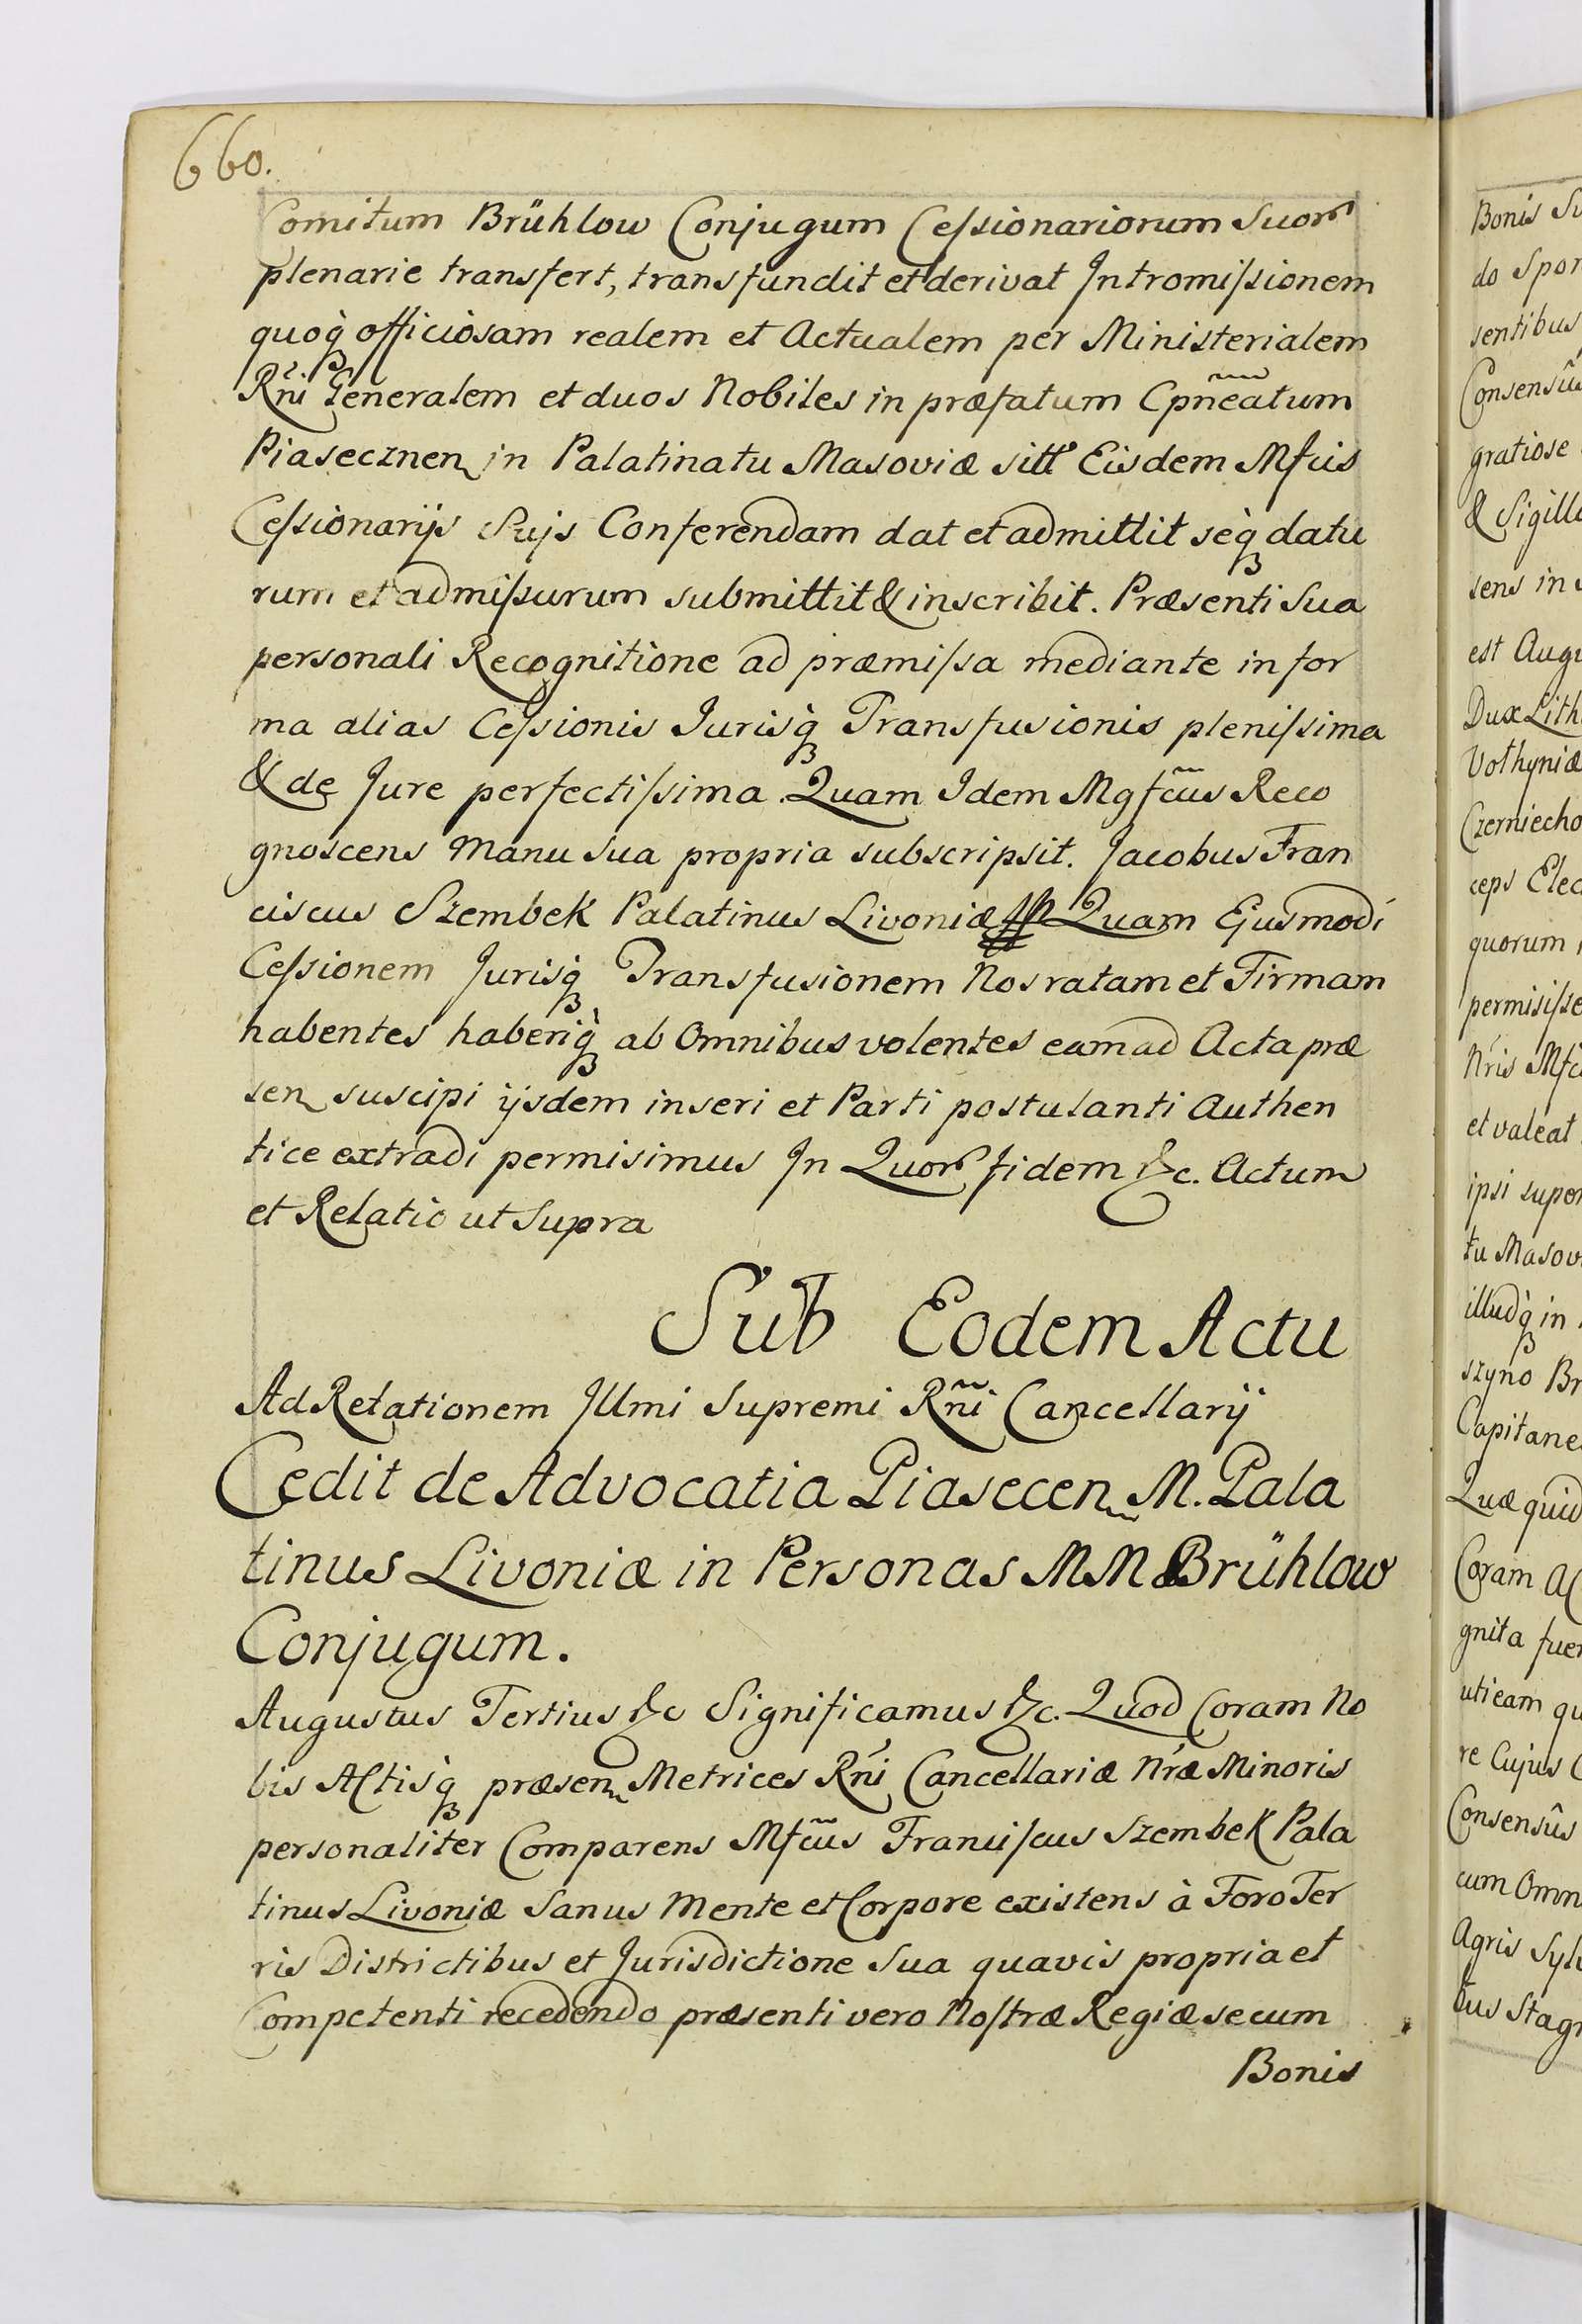 660.
Comitum Brühlow Conjugum Cessionariorum Suor
plenarie transfert, transfundit et derivat Intromissionem
quoq officiosam realem et Actualem per Ministerialem
Rni Generalem et duos Nobiles in præfatum Cpneatum
Piasecznen in Palatinatu Masoviæ sitt Eisdem Mfcis
Cessionarijs Suis Conferendam dat et admittit seq datu
rum et admissurum submittit & inscribit. Præsenti Sua
personali Recognitione ad præmissa mediante in for
ma alias Cessionis Jurisq Transfusionis plenissima
& de Jure perfectissima. Quam Idem Mgfcus Reco
gnoscens Manu Sua propria subscripsit. Jacobus Fran
ciscus Szembek Palatinus Livoniæ Quam Ejusmodi
Cessionem Jurisq Transfusionem Nos ratam et Firmam
habentes haberiq ab Omnibus volentes eam ad Acta præ
sen suscipi ijsdem inseri et Parti postulanti Authen
tice extradi permisimus In Quor fidem &c. Actum
et Relatio ut Supra
Sub Eodem Actu
Ad Relationem Illmi Supremi Rñi Cancellarij
Cedit de Advocatia Piasecen M. Pala
tinus Livoniæ in Personas MM Brühlow
Conjugum.
Augustus Tertius &c Significamus &c. Quod Coram No
bis Actisq præsen Metrices Rni Cancellariæ Nræ Minoris
personaliter Comparens Mfcus Franciscus Szembek Pala
tinus Livoniæ Sanus Mente et Corpore existens à Foro Ter
ris Districtibus et Jurisdictione Sua quavis propria et
Competenti recedendo præsenti vero Nostræ Regiæ secum
Bonis
Bonis
do
sentibus
gratiose
& Sigill
sens in
est Aug
Dux Lith
Volhyniæ
Czerniecho
ceps Elec
quorum
permisisse
et valeat
ipsi
tu Masov
illudq in
szyno Br
Capitane
Quæ quid
Coram Ac
gnita fue
uti eam qu
re Cujus
Consensûs
cum Omn
Agris Sylv
tus Stag